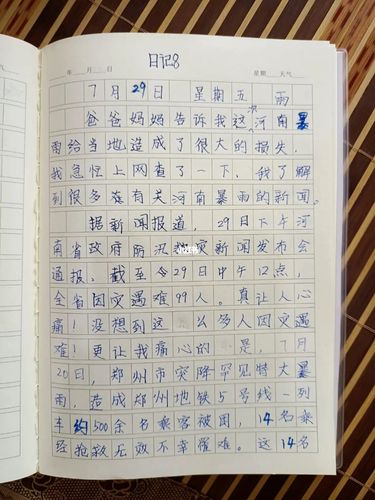 日记8
年 月 日 星期 天气
7月29日 星期五 雨
爸爸妈妈告诉我这次河南暴
雨给当地造成了很大的损失,
我急忙上网查了一下,我了解
到很多在有关河南暴雨的新闻。
据新闻报道,29日下午河
南省政府防汛救灾新闻发布会
通报,截至今29日中午12点,
全省因灾遇难99人。真让人心
痛!没想到这 么多人因灾遇
难!更让我痛心的 是,7月
20日,郑州市突降罕见特大暴
雨,造成郑州地铁5号线一列
车约500余名乘客被困,14名乘
经抢救无效不幸罹难。这14名